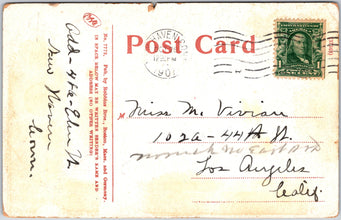 Post Card
No. 7778, Pub. by Robbins Bros., Boston, Mass. and Germany.
IN SPACE BELOW MAY BE WRITTEN SENDER'S NAME AND
ADDRESS (NO OTHER WRITING)
Add - 476 - Elm St.
New Haven
Conn.
HAVEN
190
1
Miss M. Vivian
1022 - 44th St.
Los Angeles
Calif.